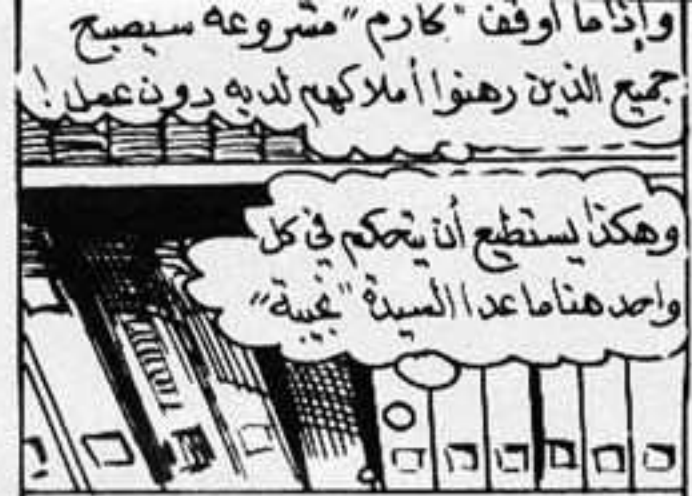 وإذا ما أوقف "كارم" مشروعه سيصبح
جميع الذين رهنوا أملاكهم لديه دون عمل!
وهكذا يستطيع أن يتحكم في كل
واحد هنا ما عدا السيدة "نجيبة"